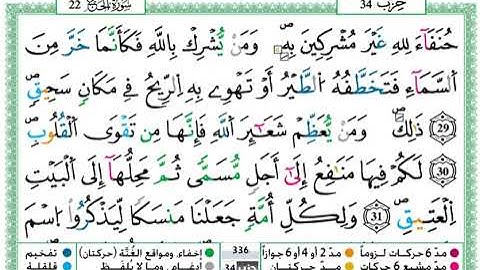 حزب 34
سُورَةُ الحَجّ 22
حُنَفَآءَ لِلهِ غَيْرَ مُشْرِكِينَ بِهِۦۖ وَمَنْ يُّشْرِكْ بِاللَّهِ فَكَأَنَّمَا خَرَّ مِنَ
اَلسَّمَآءِ فَتَخَطَّفُهُ الطَّيْرُ أَوْ تَهْوِے بِهِ اِلرِّيحُ فِے مَكَانٖ سَحِيقٖۖ
29 ذَٰلِكَۖ وَمَنْ يُّعَظِّمْ شَعَٰٓئِرَ اَللَّهِ فَإِنَّهَا مِن تَقْوَى اَلْقُلُوبِۖ
30 لَكُمْ فِيهَا مَنَٰفِعُ إِلَىٰٓ أَجَلٖ مُّسَمّىٗ ثُمَّ مَحِلُّهَآ إِلَى اَلْبَيْتِ
اِلْعَتِيقِۖ 31 وَلِكُلِّ أُمَّةٖ جَعَلْنَا مَنسَكاٗ لِّيَذْكُرُواْ اُسْمَ
مدّ 6 حركات لزوماً مدّ 2 أو 4 أو 6 جوازاً 336 إخفاء، ومواقع الغُنَّة (حركتان) تفخيم
مدّ مشبع 6 حركات مدّ حركتان إدغام، وما لا يُلفَظ قلقلة